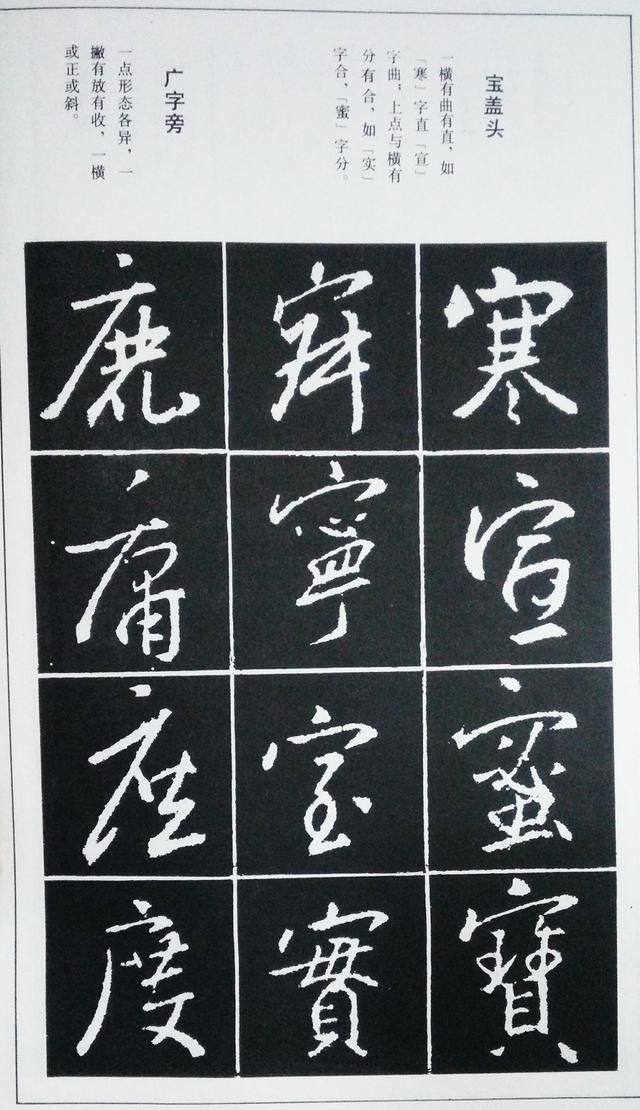 宝盖头
一横有曲有直，如
「寒」字直「宣」
字曲；上点与横有
分有合，如「实」
字合，「蜜」字分。
广字旁
一点形态各异，一
撇有放有收，一横
或正或斜。
寒
宣
蜜
寶
寧
室
實
鹿
庸
座
度